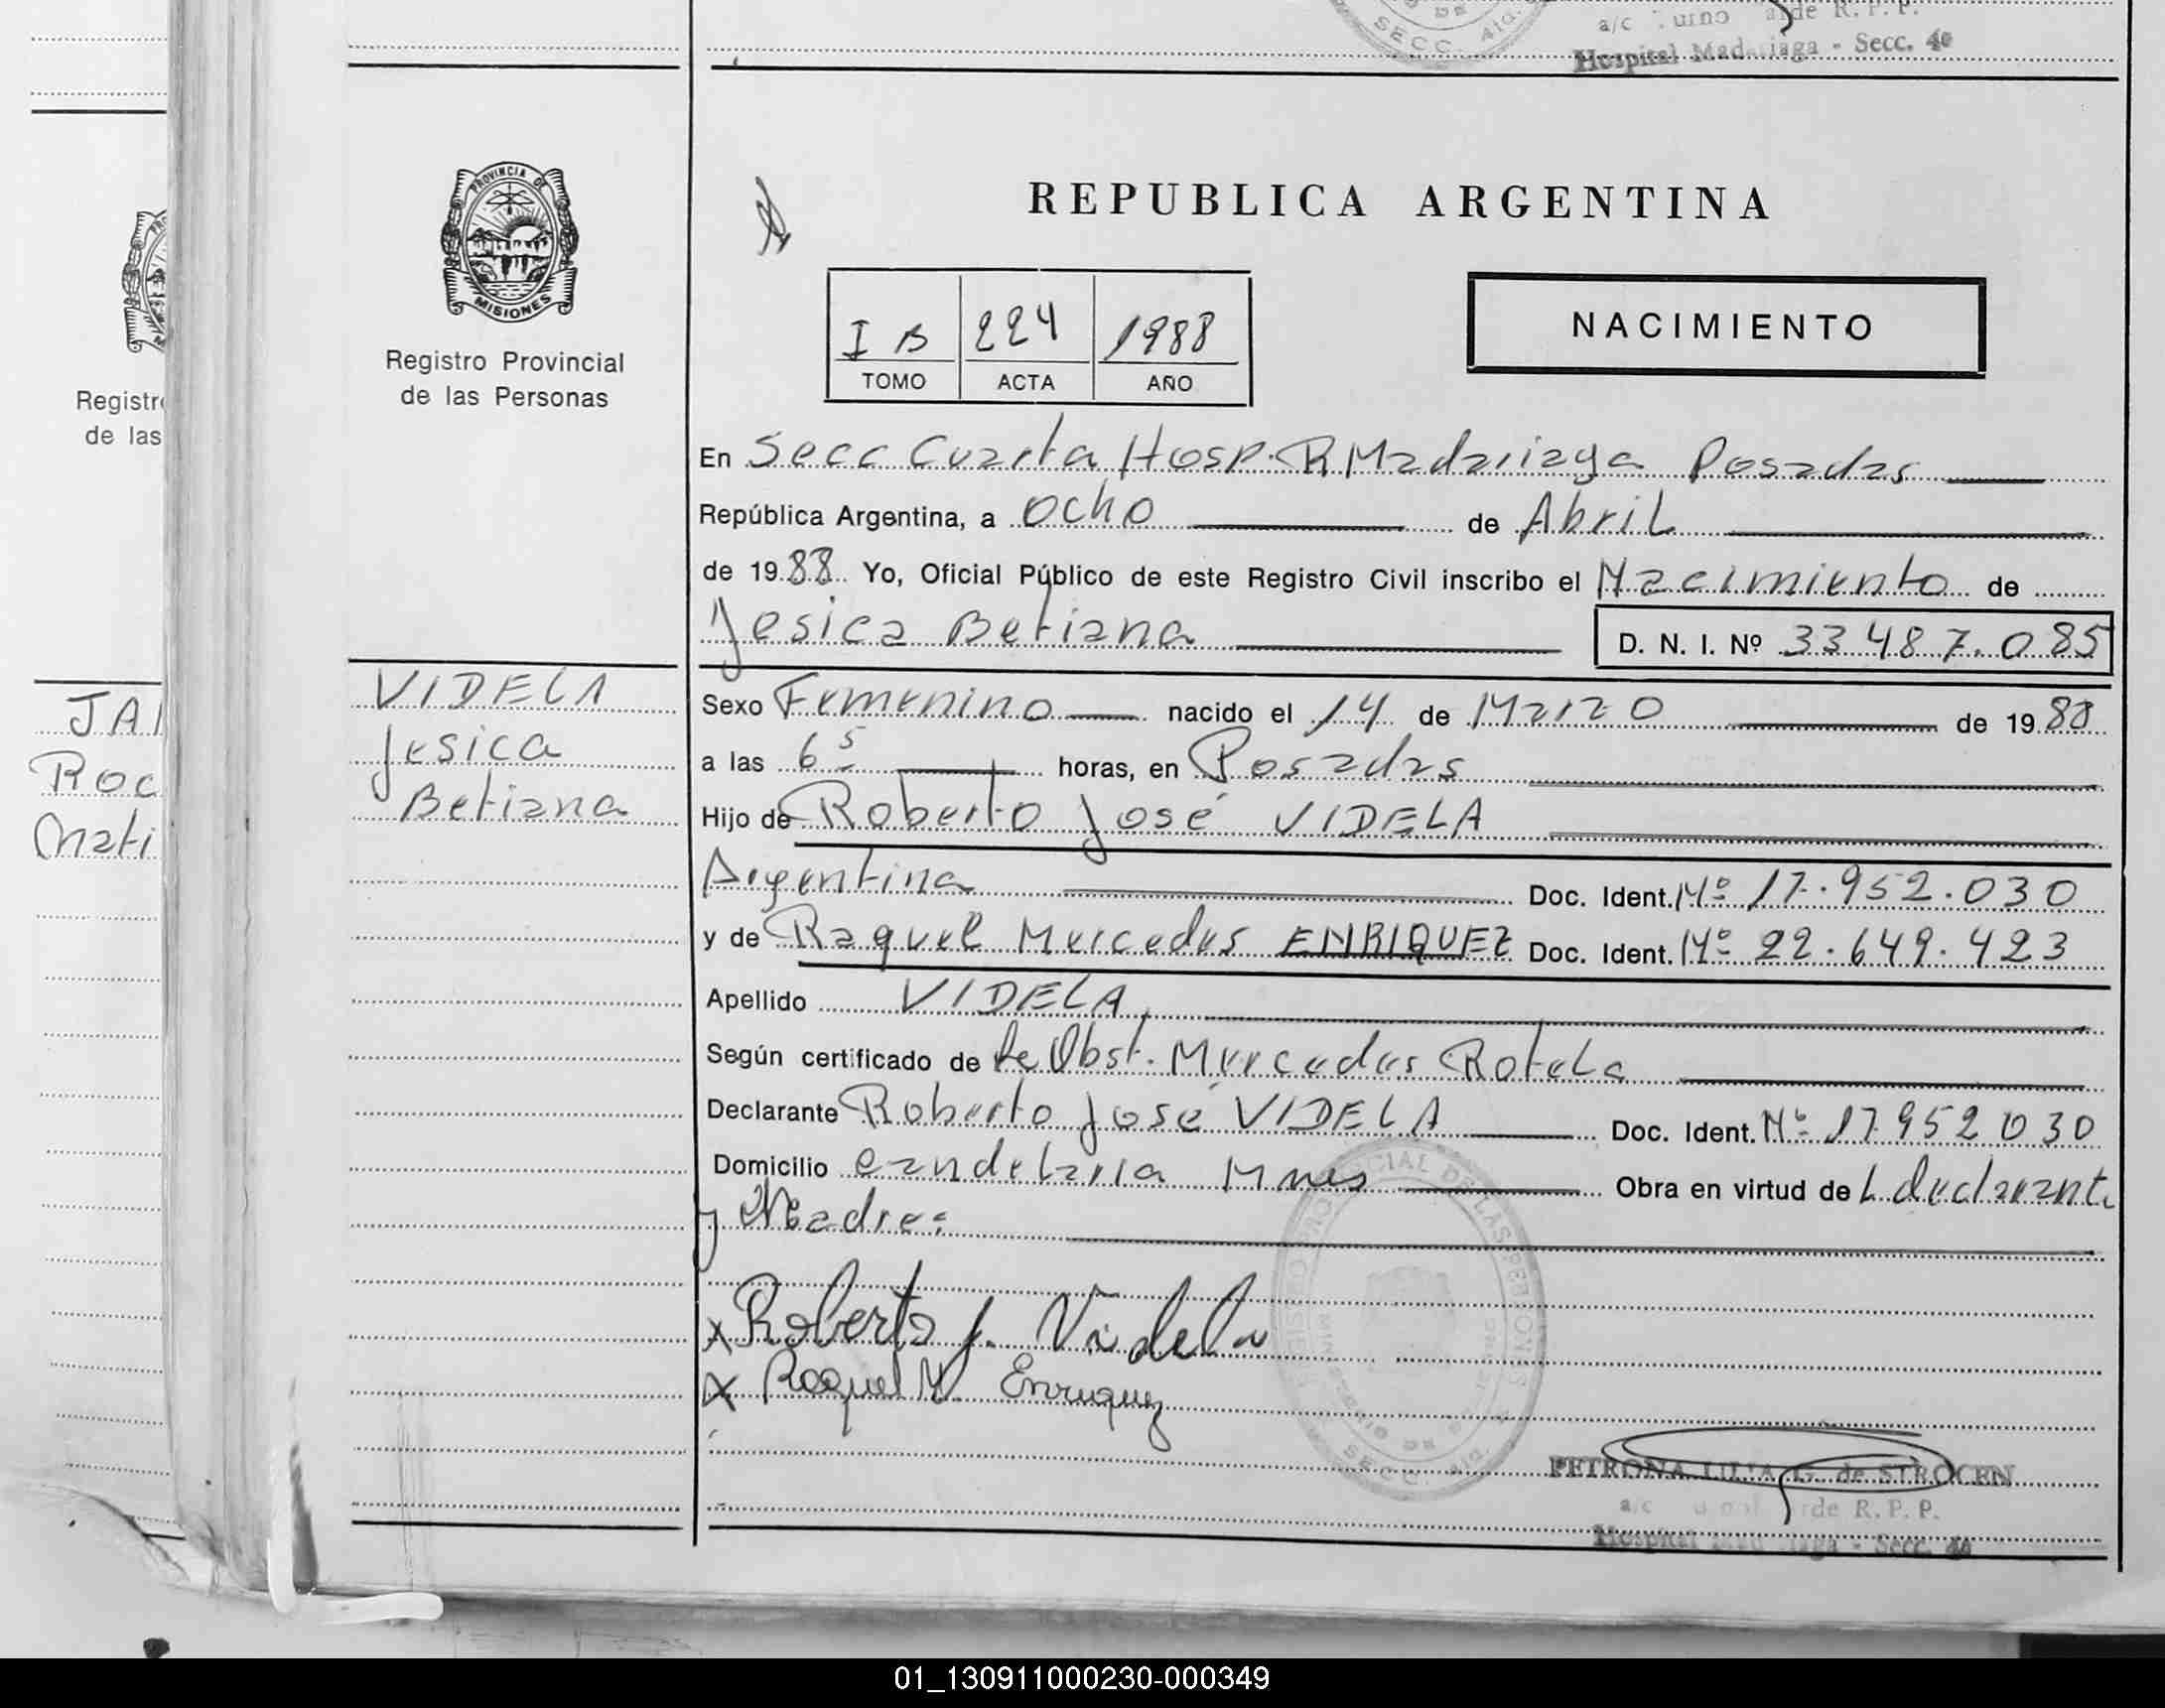 a/c de R. P. P.
SECC.
Hospital Madariaga - Secc. 4a
PROVINCIA DE
MISIONES
Registro Provincial
de las Personas
REPUBLICA ARGENTINA
I B 224 1988
TOMO ACTA AÑO
NACIMIENTO
En Secc Cuarta Hosp. R Madariaga Posadas
República Argentina, a ocho de Abril
de 1988 Yo, Oficial Público de este Registro Civil inscribo el Nacimiento de
Jesica Betiana D. N. I. Nº 33 487.085
VIDELA
Jesica
Betiana
Sexo Femenino nacido el 14 de Marzo de 1988
a las 6 5 horas, en Posadas
Hijo de Roberto José VIDELA
Argentina Doc. Ident. Nº 17.952.030
y de Raquel Mercedes ENRIQUEZ Doc. Ident. Nº 22.649.423
Apellido VIDELA
Según certificado de la Obst. Mercedes Rotela
Declarante Roberto José VIDELA Doc. Ident. Nº 17952030
Domicilio Candelaria Mnes Obra en virtud de L declarante
y Madre:
x Roberto J. Videla
x Raquel M. Enriquez
PETRONA LILIA G. de STROCEN
a/c R. P. P.
Hospital Secc. 4a
Registr
de las
JA
Roc
Mati
01_130911000230-000349